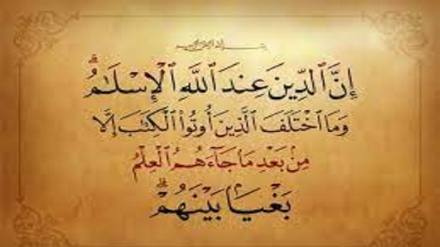 بِسْمِ اللَّهِ الرَّحْمَٰنِ الرَّحِيمِ
إِنَّ ٱلدِّينَ عِندَ ٱللَّهِ ٱلْإِسْلَٰمُ ۗ
وَمَا ٱخْتَلَفَ ٱلَّذِينَ أُوتُوا۟ ٱلْكِتَٰبَ إِلَّا
مِنۢ بَعْدِ مَا جَآءَهُمُ ٱلْعِلْمُ
بَغْيًۢا بَيْنَهُمْ ۗ